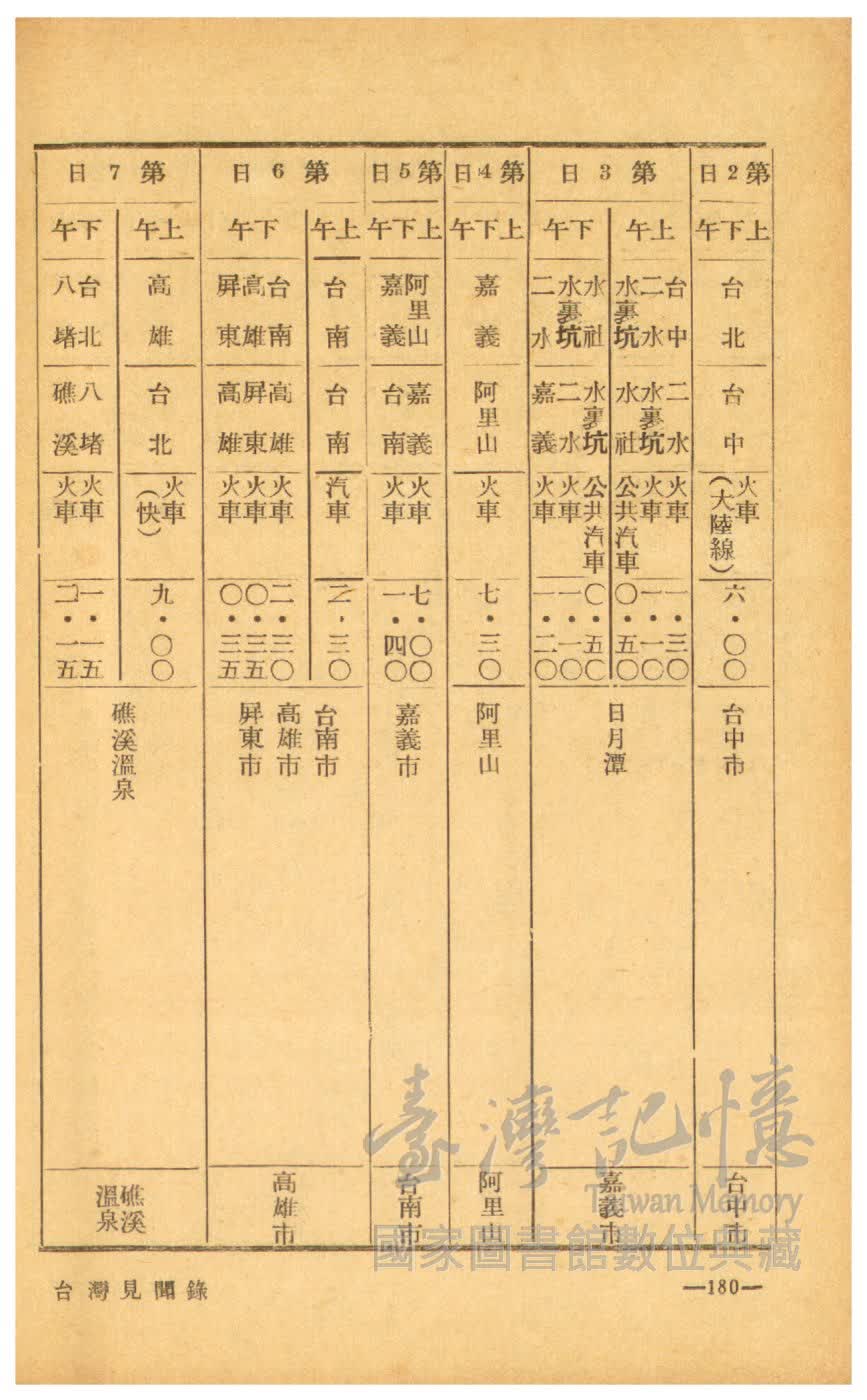 第2日
上下午
台北
台中
火車
(大陸線)
六・〇〇
台中市
台中市
第3日
上午
台中
二水
水裏坑
二水
水裏坑
水社
火車
火車
公共汽車
一・三〇
一・一〇
〇・五〇
下午
水社
水裏坑
二水
水裏坑
二水
嘉義
公共汽車
火車
火車
〇・五〇
一・一〇
一・二〇
日月潭
嘉義市
第4日
上下午
嘉義
阿里山
火車
七・三〇
阿里山
阿里山
第5日
上下午
阿里山
嘉義
嘉義
台南
火車
火車
七・〇〇
一・四〇
嘉義市
台南市
第6日
上午
台南
台南
汽車
三〇
下午
台南
高雄
屏東
高雄
屏東
高雄
火車
火車
火車
二・三〇
〇・三五
〇・三五
台南市
高雄市
屏東市
高雄市
第7日
上午
高雄
台北
火車
(快)
九・〇〇
下午
台北
八堵
八堵
礁溪
火車
火車
一・一五
二・一五
礁溪溫泉
礁溪
溫泉
台灣見聞錄
—180—
臺灣記憶
Taiwan Memory
國家圖書館數位典藏